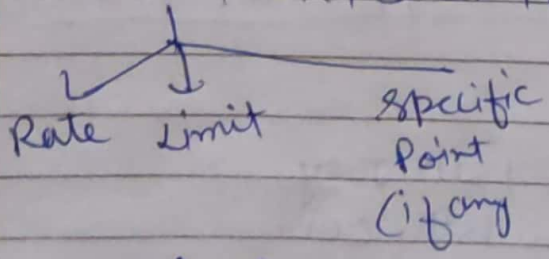 Rate Limit specific
Point
(if any